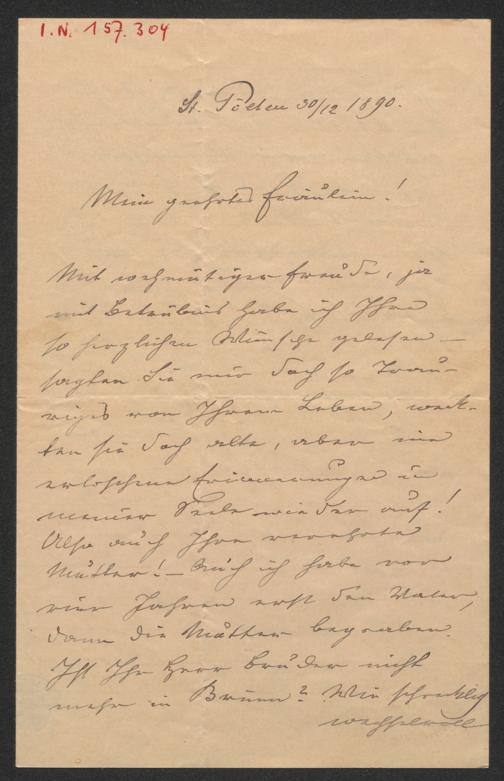 I.N. 157.304
St. Pölten 30/12 1890.
Mein geehrtes Fräulein!
Mit wehmütiger Freude, ja
mit Betrübnis habe ich Ihre
so herzlichen Wünsche gelesen –
sagten Sie mir doch so trau-
riges von Ihrem Leben, weck-
ten sie doch alte, aber nie
erloschene Erinnerungen in
meiner Seele wieder auf!
Also auch Ihre verehrte
Mutter! – Auch ich habe vor
vier Jahren erst den Vater,
dann die Mutter begraben.
Ist Ihr Herr Bruder nicht
mehr in Brünn? Wie schrecklich
wechselvoll